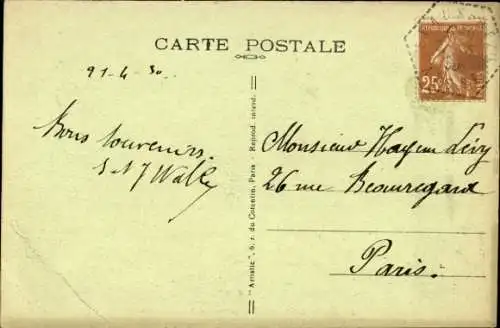 CARTE POSTALE
REPUBLIQUE FRANÇAISE
25c
21-4-30
Bons souvenirs
Monsieur Hayem Lévy
26 rue Beauregard
Paris.
"Artistic", 6, r. du Cotentin, Paris - Reprod. interd.